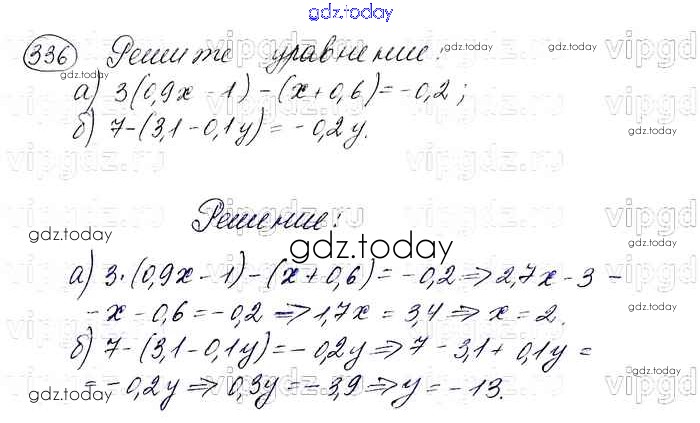 gdz.today
336 Решите уравнение:
а) 3(0,9x - 1) - (x + 0,6) = -0,2;
б) 7 - (3,1 - 0,1y) = -0,2y.
gdz.today
gdz.today
vipgdz.ru
Решение:
gdz.today
gdz.today
gdz.today
а) 3·(0,9x - 1) - (x + 0,6) = -0,2 ⇒ 2,7x - 3 -
- x - 0,6 = -0,2 ⇒ 1,7x = 3,4 ⇒ x = 2.
б) 7 - (3,1 - 0,1y) = -0,2y ⇒ 7 - 3,1 + 0,1y =
= -0,2y ⇒ 0,3y = -3,9 ⇒ y = -13.
gdz.today
gdz.today